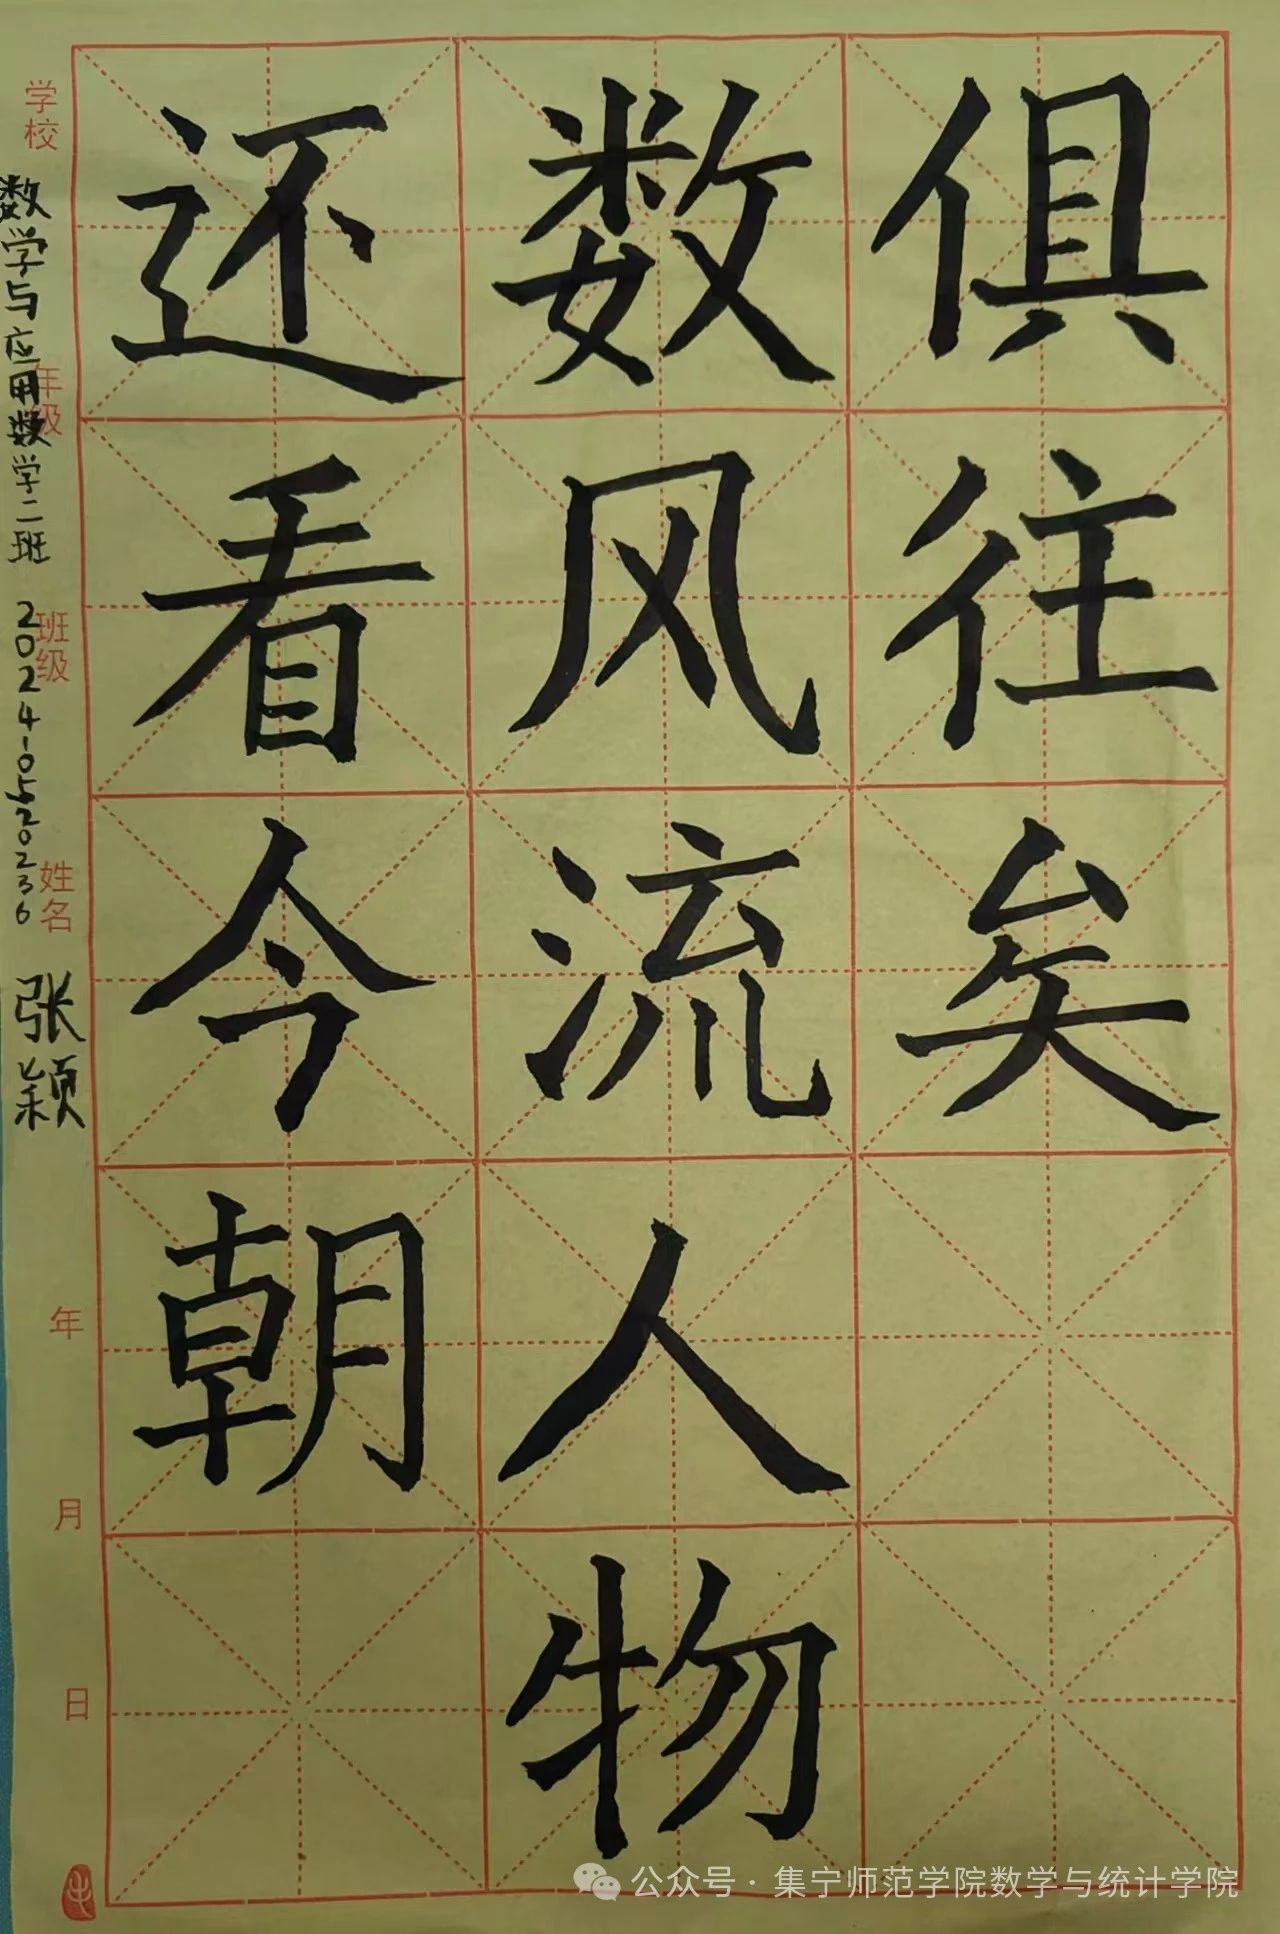 俱往矣
数风流人物
还看今朝
学校
年级
班级
姓名
年
月
日
数学与应用数学二班 202410520236 张颖
公众号·集宁师范学院数学与统计学院